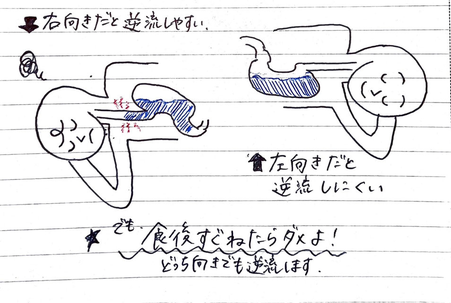 ⬇右向きだと逆流しやすい.
⬆左向きだと
逆流しにくい
★でも.食後すぐねたらダメよ!
どっち向きでも逆流します.